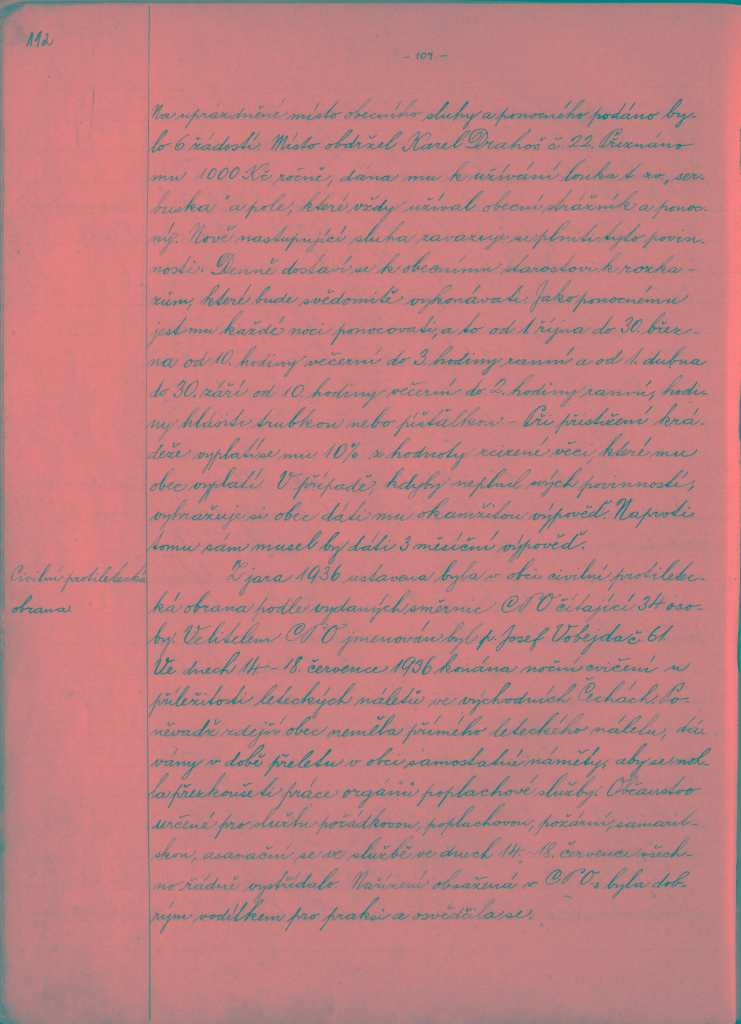 112
- 107 -
Na uprázdněné místo obecního sluhy a ponocného podáno by-
lo 6 žádostí. Místo obdržel Karel Drahoš č. 22. Přiznáno
mu 1000 Kč ročně, dána mu k užívání louka t. zv. „ser-
buska" a pole, které vždy užíval obecní strážník a ponoc-
ný. Nově nastupující sluha zavazuje se plniti tyto povin-
nosti: Denně dostaví se k obecnímu starostovi k rozka-
zům, které bude svědomitě vykonávati. Jako ponocnému
jest mu každé noci ponocovati, a to od 1. října do 30. břez-
na od 10. hodiny večerní do 3. hodiny ranní a od 1. dubna
do 30. září od 10. hodiny večerní do 2. hodiny ranní, hodi-
ny hlásiti trubkou nebo píšťalkou. - Při přistižení krá-
deže vyplatí se mu 10% z hodnoty zcizené věci, které mu
obec vyplatí. V případě, kdyby neplnil svých povinností,
vyhražuje si obec dáti mu okamžitou výpověď. Naproti
tomu sám musel by dáti 3 měsíční výpověď.
Civilní protiletecká
obrana
Z jara 1936 ustavena byla v obci civilní protiletec-
ká obrana podle vydaných směrnic CPO čítající 34 oso-
by. Velitelem CPO jmenován byl p. Josef Vobejda č. 61.
Ve dnech 14 - 18. července 1936 konána noční cvičení u
příležitosti leteckých náletů ve východních Čechách. Po-
něvadž zdejší obec neměla přímého leteckého náletu, dá-
vány v době přeletu v obci samostatné náměty, aby se moh-
la přezkoušeti práce orgánů poplachové služby. Občanstvo
určené pro službu pořádkovou, poplachovou, požární, samarit-
skou, asanační se ve službě ve dnech 14. - 18. července všech-
no řádně vystřídalo. Nařízení obsažená v CPO-s byla dob-
rým vodítkem pro praksi a osvědčila se.